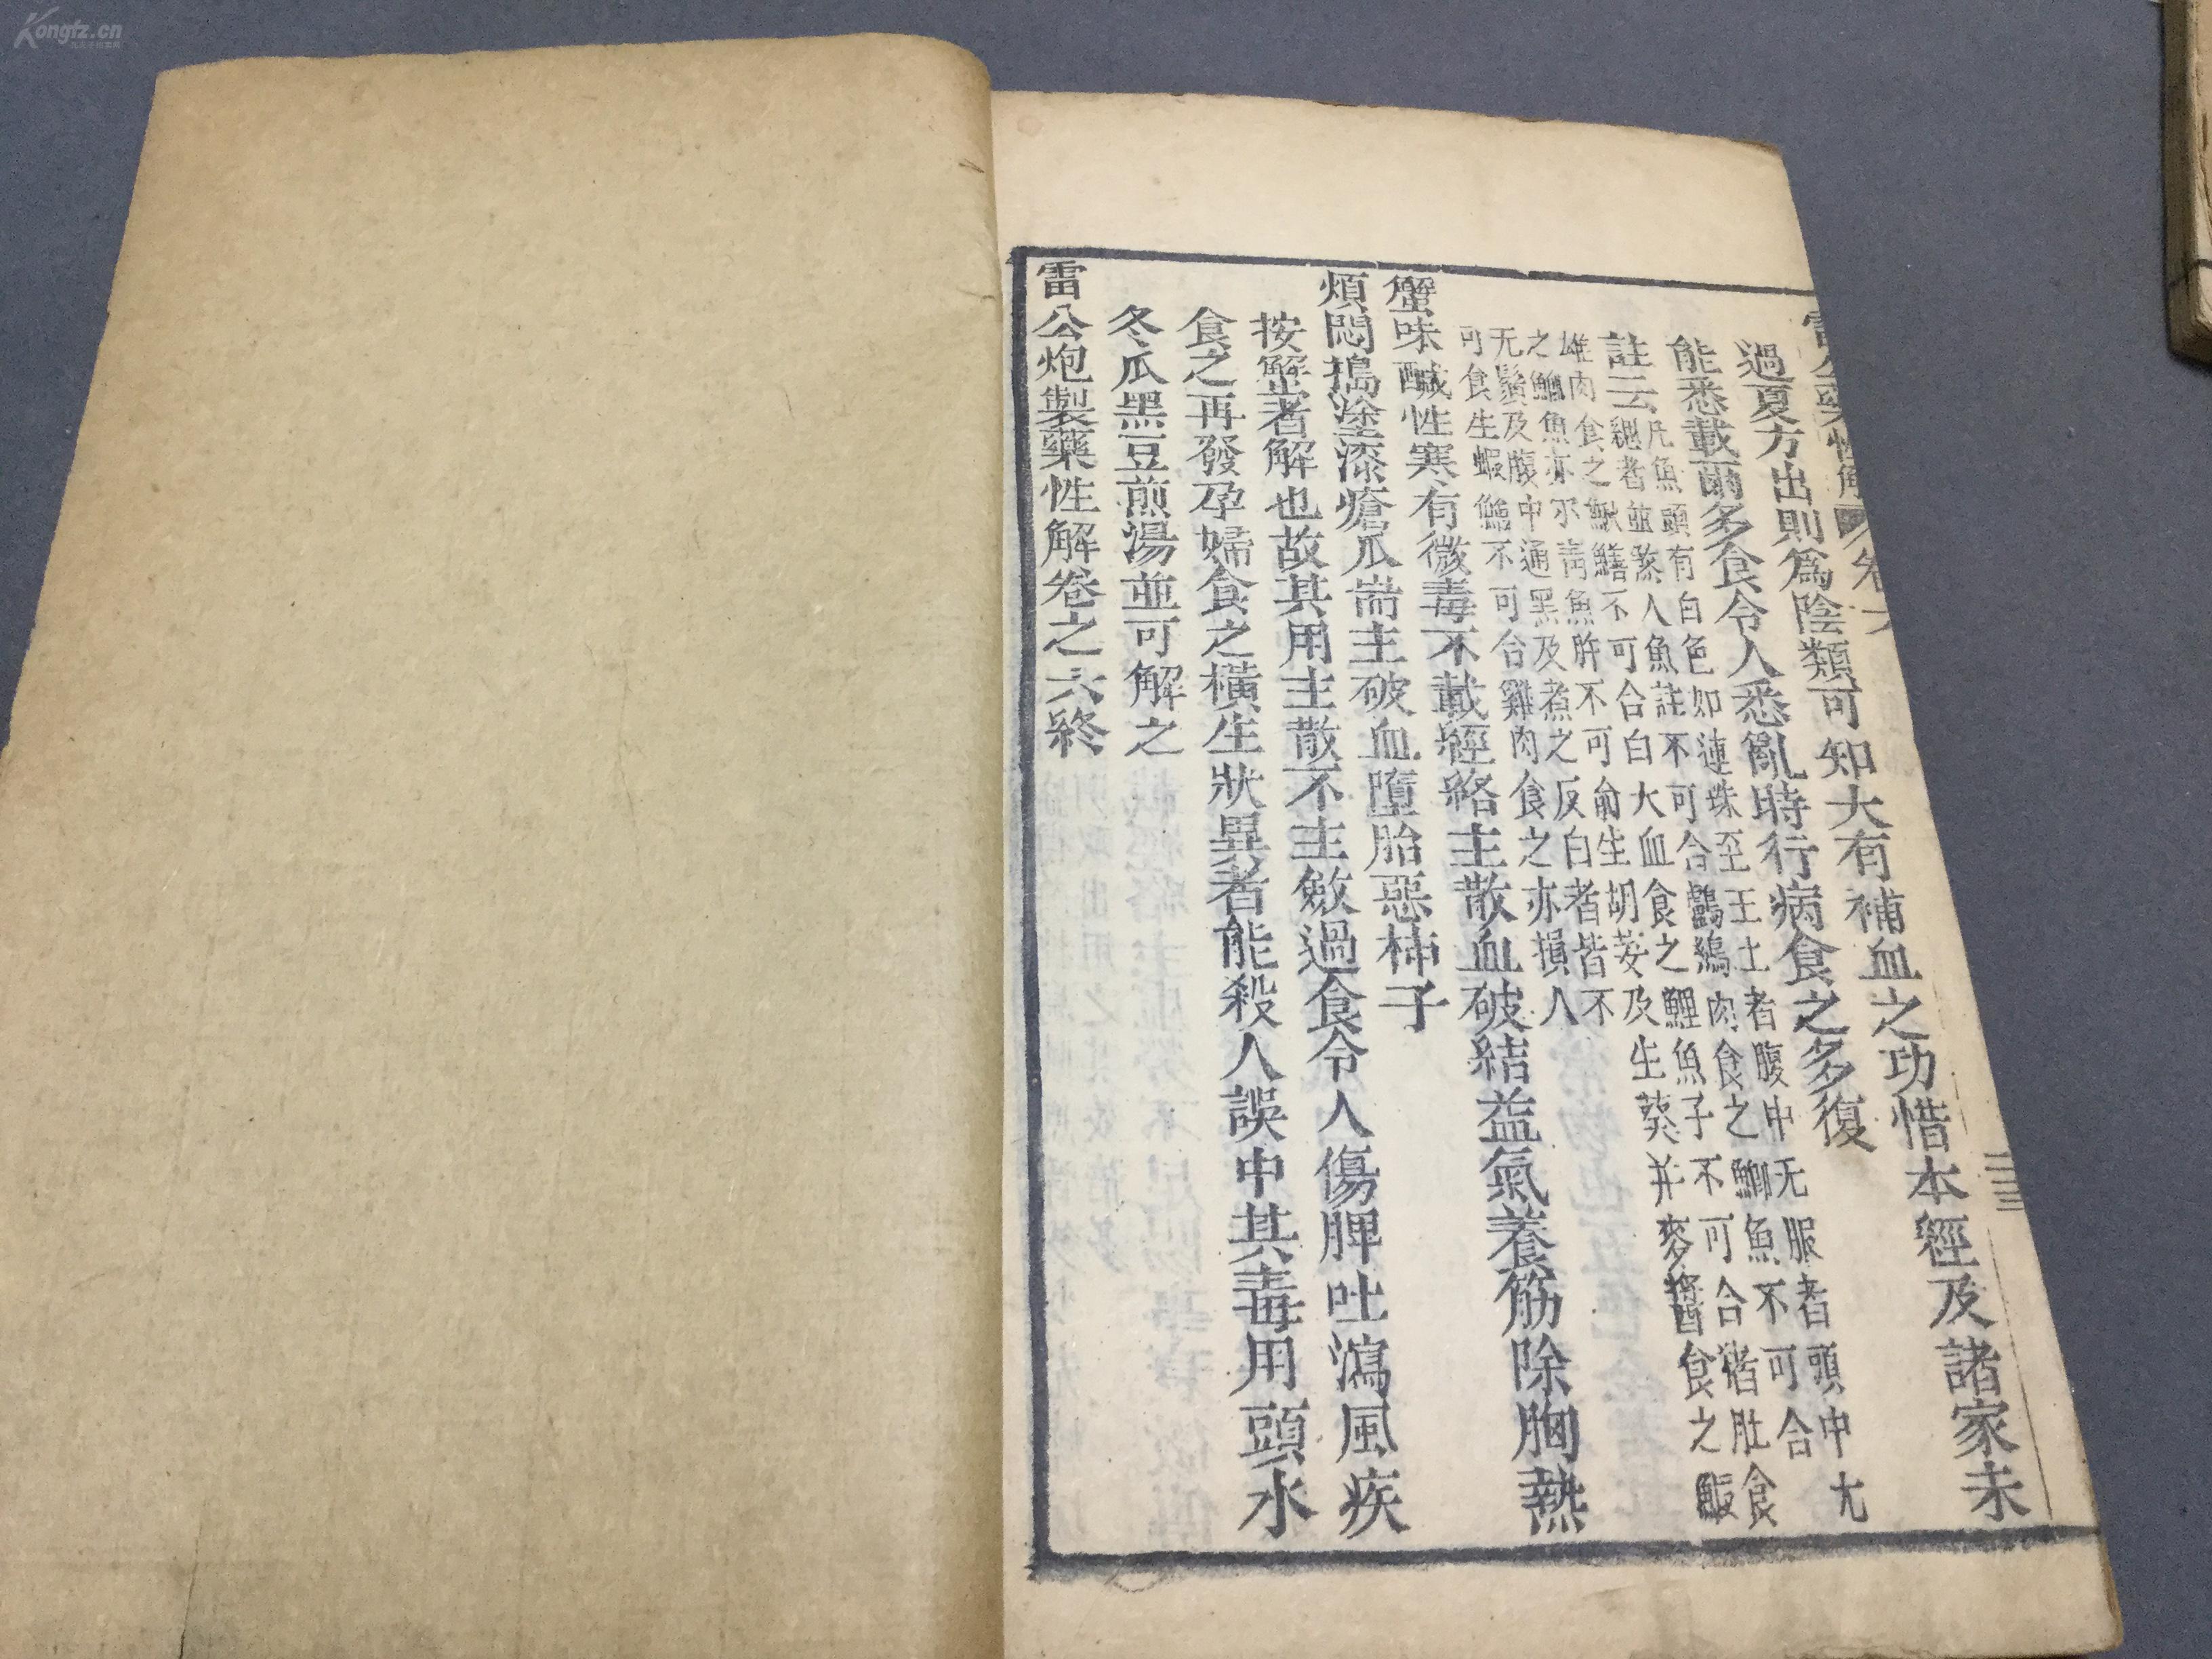 雷公藥性解 卷六
過夏方出則爲陰類可知大有補血之功惜本經及諸家未
能悉載爾多食令人悉亂時行病食之多復
註云凡魚頭有白色如連珠至
土者腹中无
者頭中
鰓者並煞人魚註不可合鸕鷀肉食之鯽魚不可合
雄肉食之鰍鱔不可合白犬血食之鯉魚子不可合猪肚食
之鯽魚亦尔青魚鮓不可
生胡荽及生葵并麥醬食之鰕
无鬚及腹中通黑及煮之反白者皆不
可食生蝦鱠不可合雞肉食之亦損人
蟹味鹹性寒有微毒不載經絡主散血破結益氣養筋除胸熱
煩悶搗塗漆瘡瓜耑主破血墮胎惡柿子
按蟹者解也故其用主散不主斂過食令人傷脾吐瀉風疾
食之再發孕婦食之橫生狀異者能殺人誤中其毒用頭水
冬瓜黑豆煎湯並可解之
雷公炮製藥性解卷之六終
Kongfz.cn